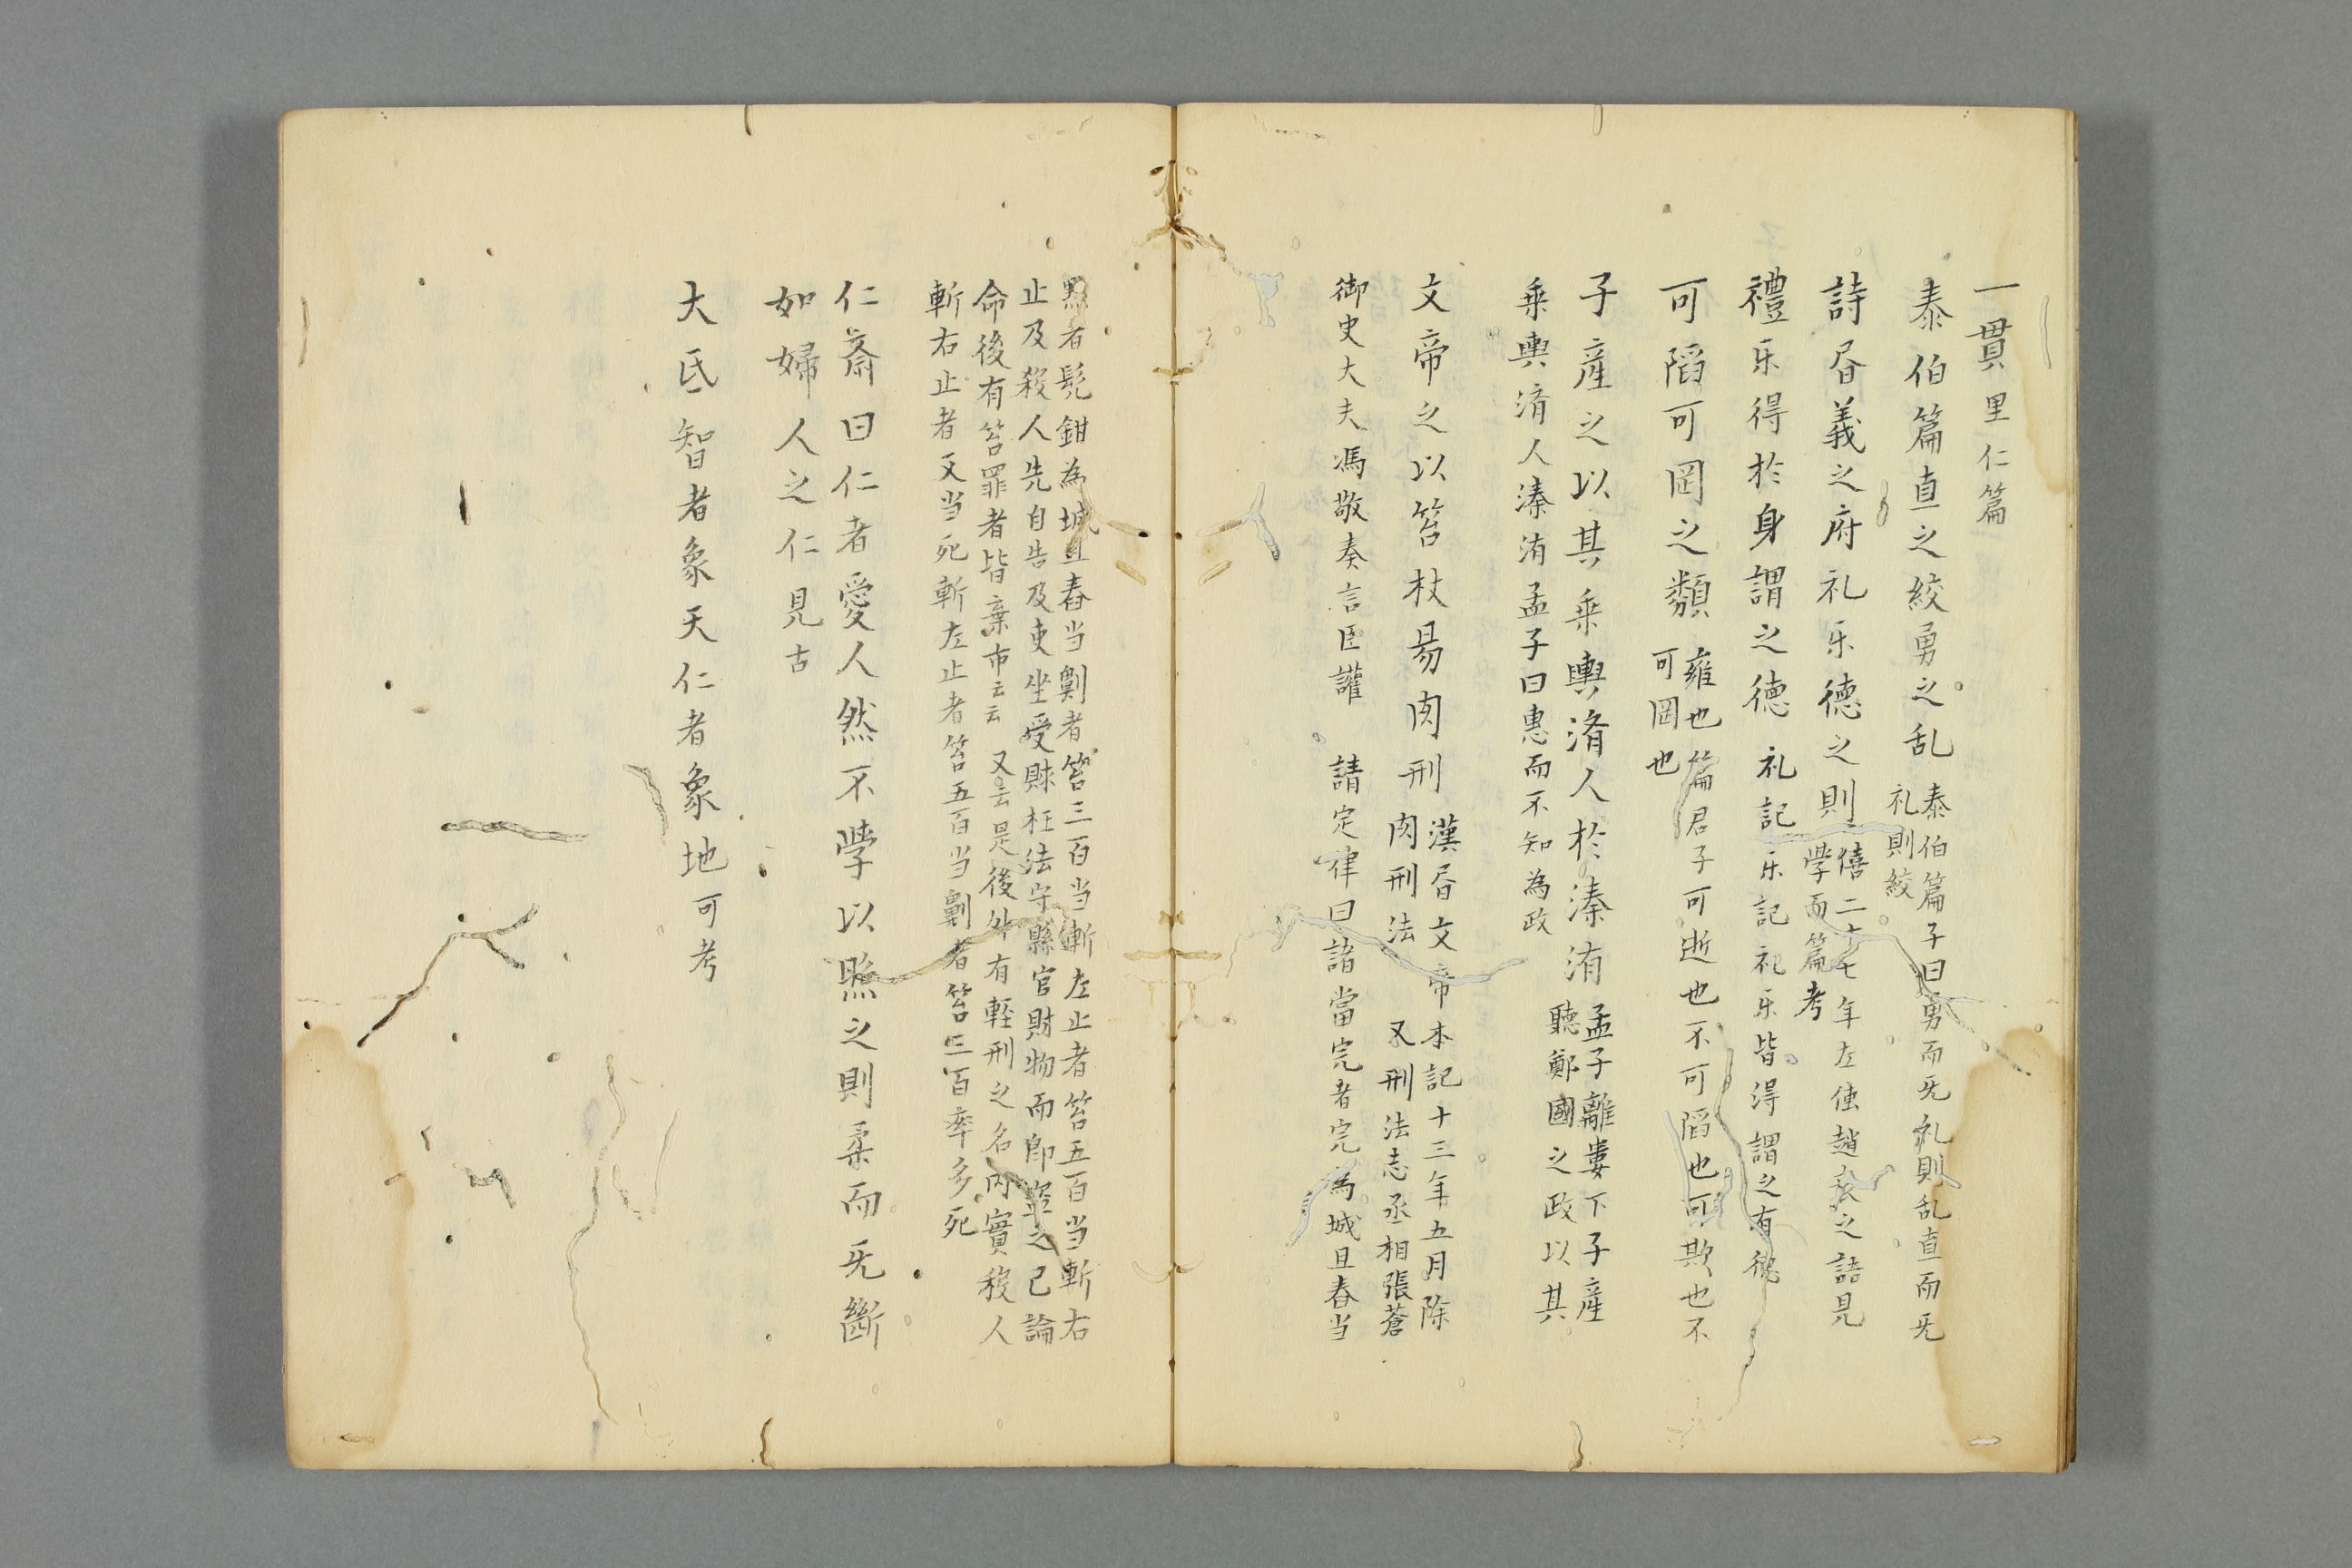 一貫里仁篇
泰伯篇直之絞勇之乱
泰伯篇子曰勇而旡礼則乱直而旡
礼則絞
詩𣅳義之府礼乐德之則
僖二十七年左傳趙衰之詰見
學而篇考
禮乐得於身謂之德
礼記乐記礼乐皆得謂之有德
可䧟可罔之類
雍也篇君子可逝也不可䧟也可欺也不
可罔也
子産之以其乗輿濟人於溱洧
孟子離婁下子産
聽鄭國之政以其
乗輿濟人溱洧孟子曰惠而不知為政
文帝之以笞杖易肉刑
漢𣅳文帝本記十三年五月除
肉刑法　又刑法志丞相張蒼
御史大夫馮敬奏言臣讙　請定律曰諸當完者完為城旦舂当
黥者髡鉗為城旦舂当劓者笞三百当斬左止者笞五百当斬右
止及殺人先自告及吏坐受賕枉法守縣官財物而即盗之已論
命後有笞罪者皆棄市云云　又云是後外有輕刑之名内實殺人
斬右止者又当死斬左止者笞五百当劓者笞三百率多死
仁斎曰仁者愛人然不學以照之則柔而旡斷
如婦人之仁見古
大氐智者象天仁者象地可考